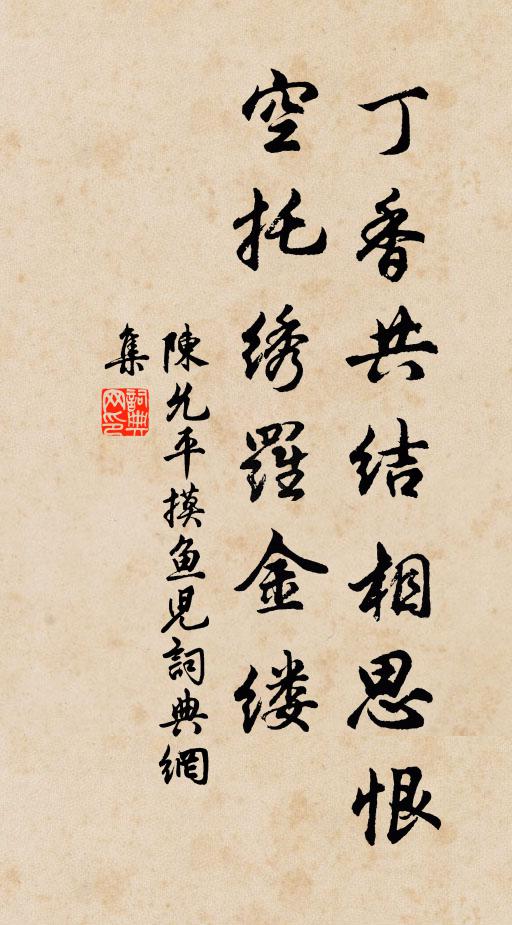 丁香共结相思恨
空托绣羅金缕
陳允平摸鱼児詞典網
集
詞典网印